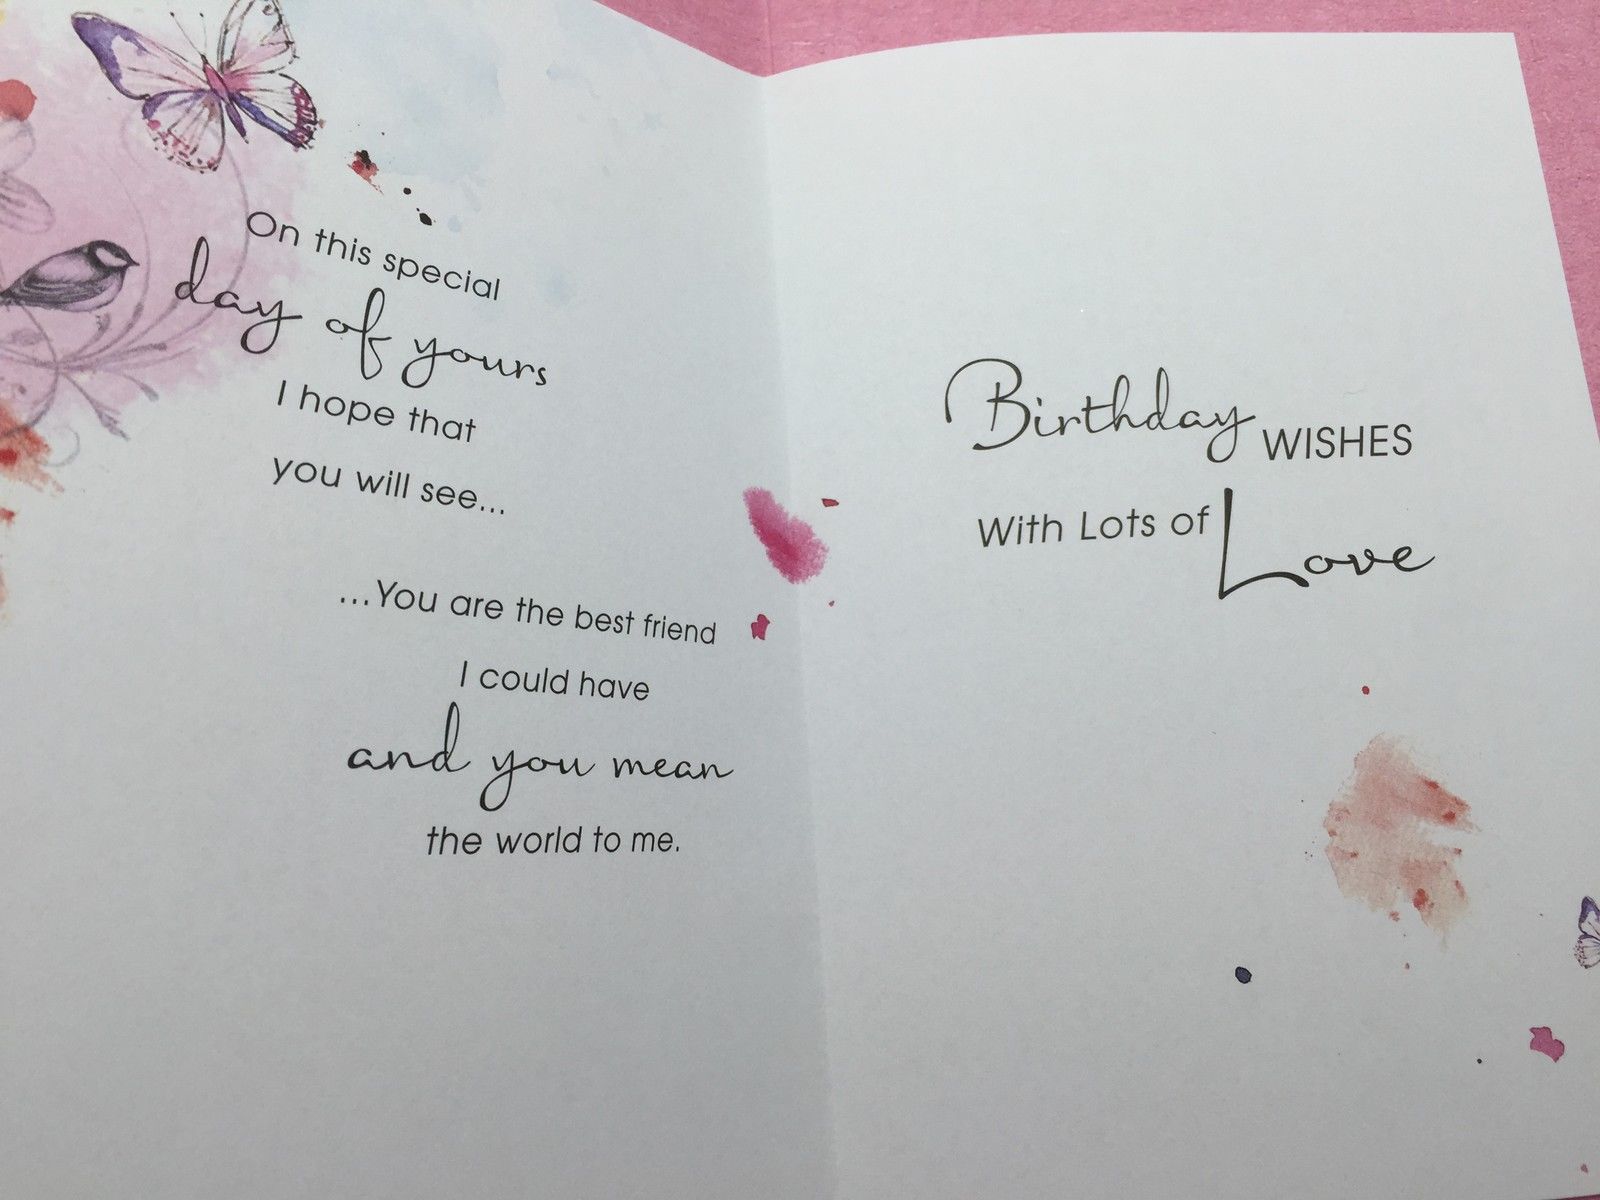 On this special
day of yours
I hope that
you will see...
...You are the best friend
I could have
and you mean
the world to me.
Birthday WISHES
With Lots of Love